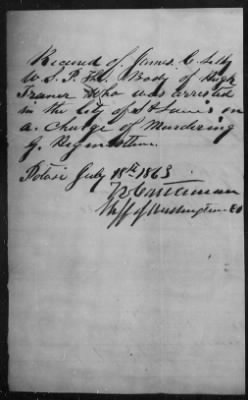 Received of James C. Selby
U.S.P. The Body of Hugh
Traner Who was arrested
in the City of St Louis on
a Charge of Murdering
G.
Potosi July 18th 1863
Shff of Washington Co